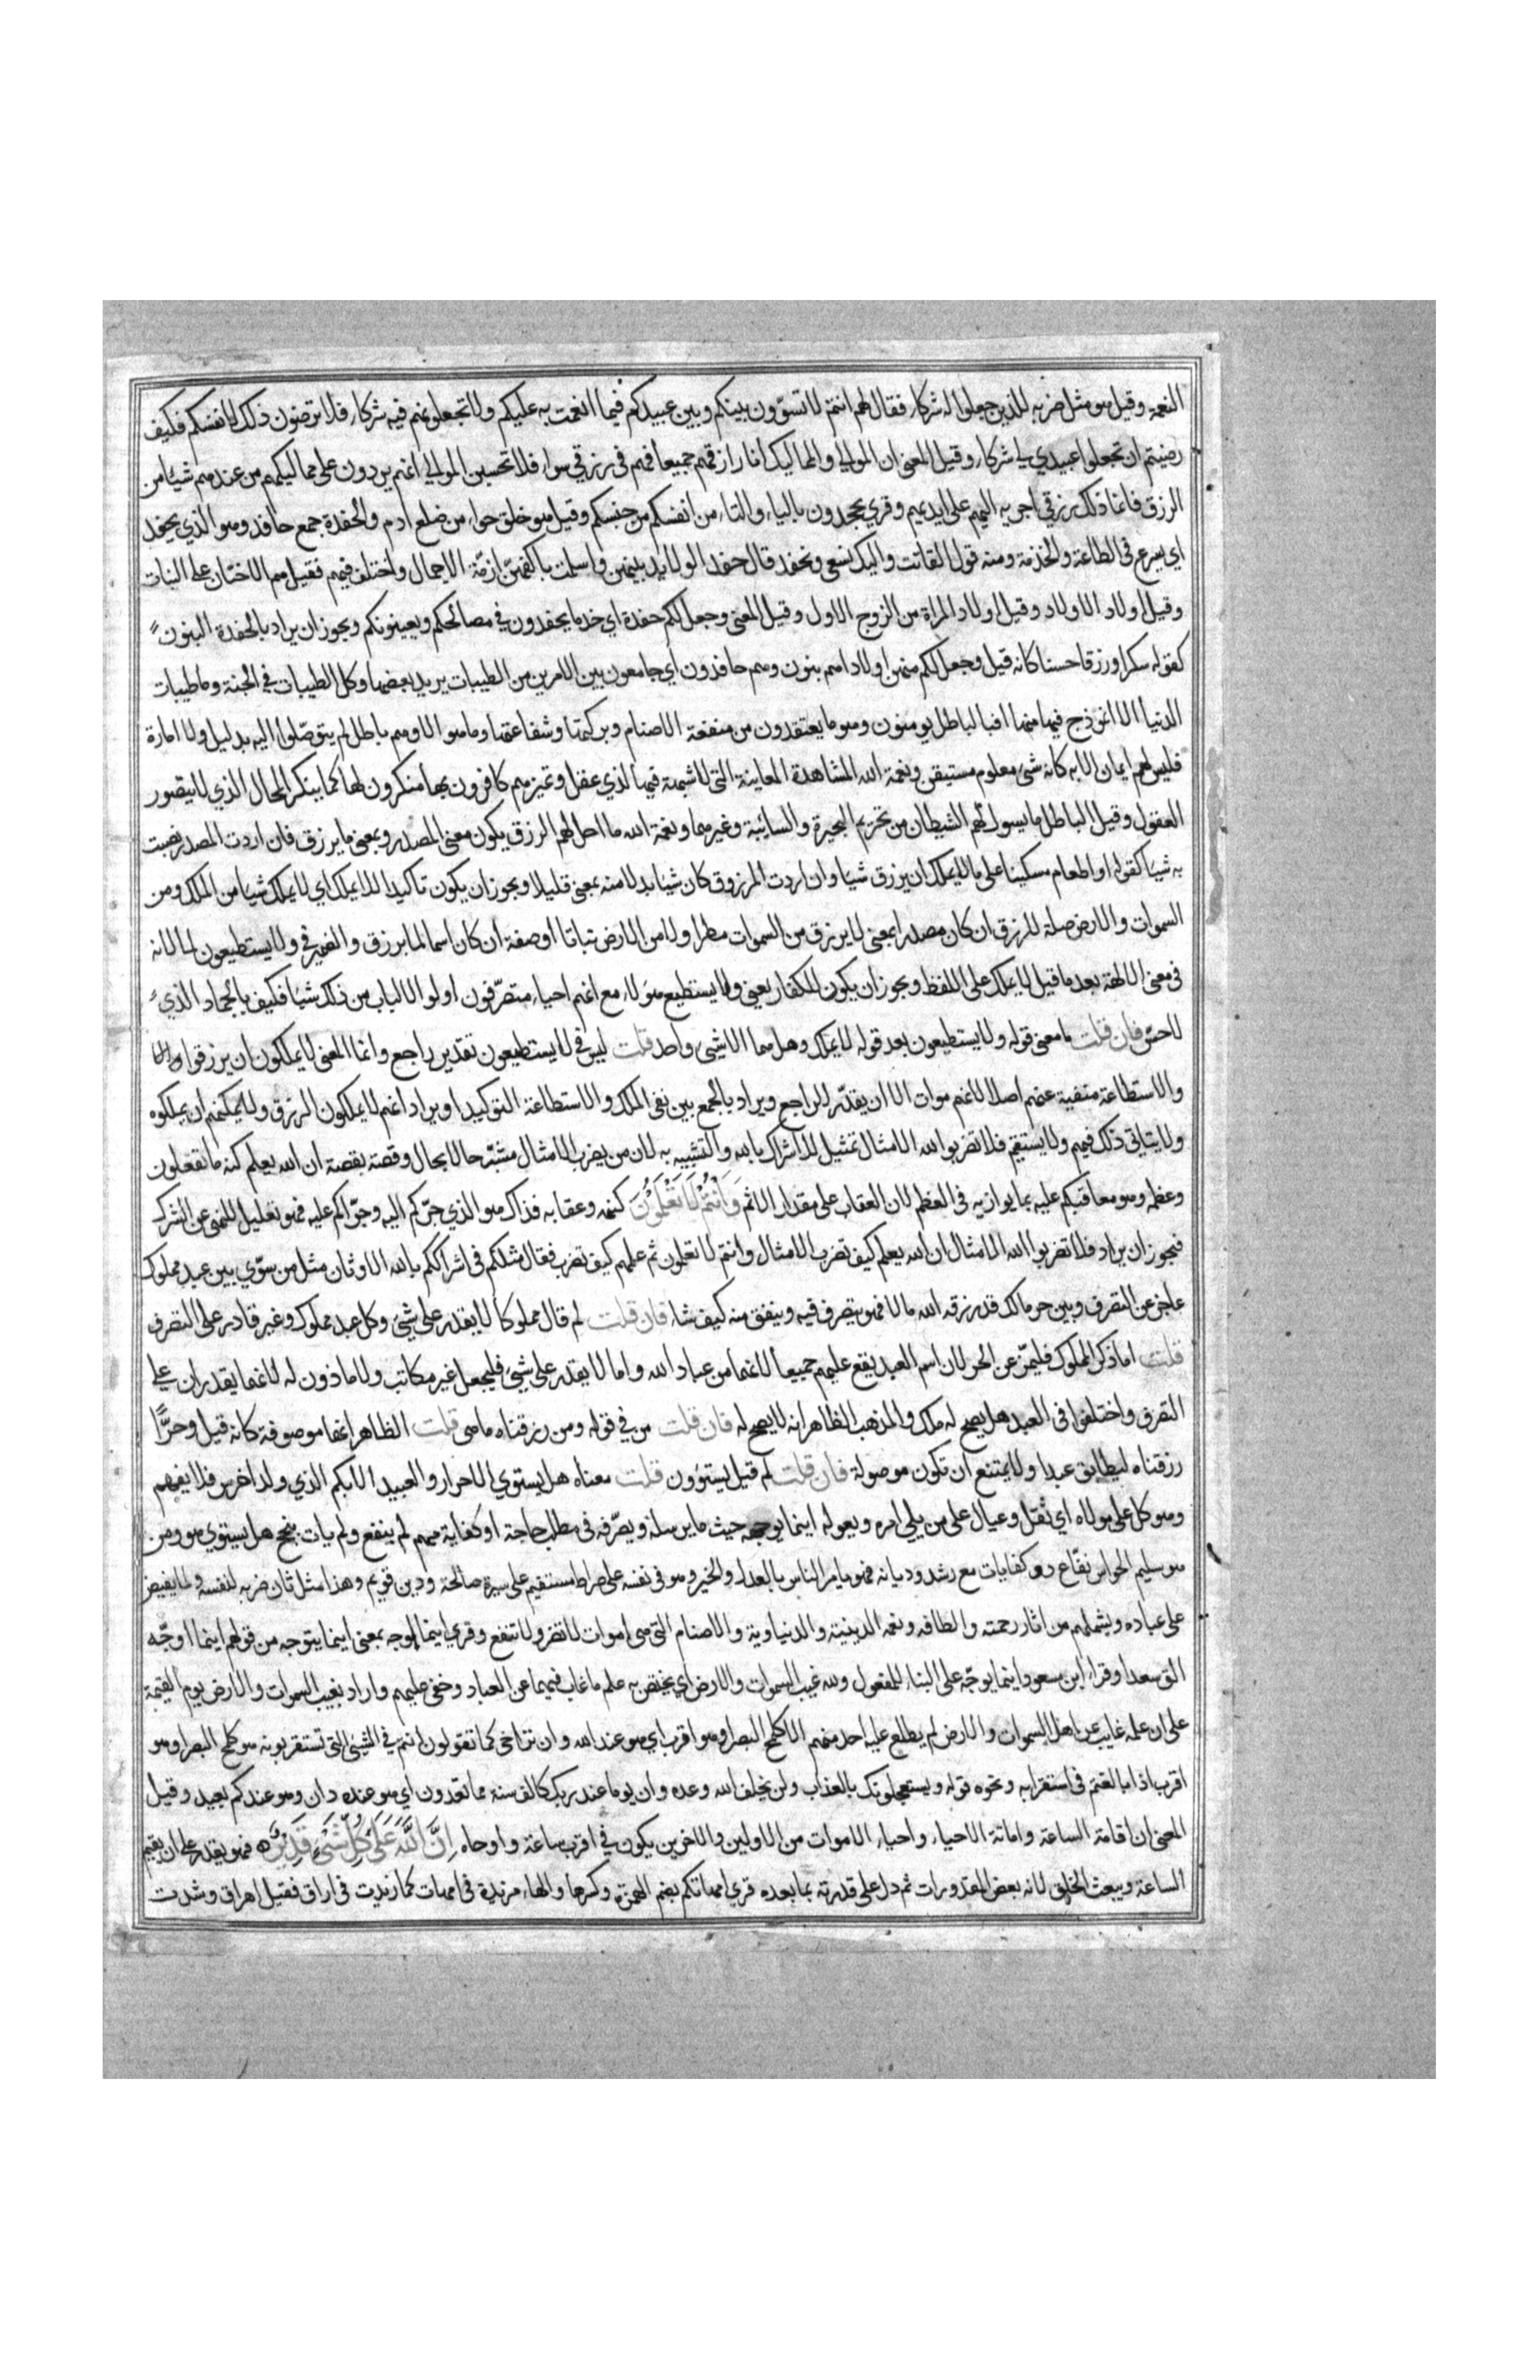 النعمة وقيل هو مثل ضربه للذين جعلوا له شركاء فقال لهم انتم لا تسوّون بينكم وبين عبيدكم فيما انعمت به عليكم ولا تجعلونهم فيه شركاء فلا ترضون ذلك لانفسكم فكيف
رضيتم ان تجعلوا عبيدي لي شركاء وقيل المعنى ان الموالي والمماليك انا رازقهم جميعا فهم في رزقي سواء فلا تحسبن الموالي انهم يردون على مماليكهم من عندهم شيئا من
الرزق فانما ذلك رزقي اجريه اليهم على ايديهم وقري يجحدون بالياء والتاء من انفسكم من جنسكم وقيل هو خلق حواء من ضلع ادم والحفدة جمع حافد وهو الذي يحفد
اي يسرع في الطاعة والخدمة ومنه قول القانت واليك نسعى ونحفد قال حفد الولايد بينهن واسلمت باكفهنّ ازمّة الاجمال واختلف فيهم فقيل هم الاختان على البنات
وقيل اولاد الاولاد وقيل اولاد المراة من الزوج الاول وقيل المعنى وجعل لكم حفدة اي خدما يحفدون في مصالحكم ويعينونكم ويجوز ان يراد بالحفدة البنون
كقوله سكرا ورزقا حسنا كانه قيل وجعل لكم منهن اولادا هم بنون وهم حافدون اي جامعون بين الامرين من الطيبات يريد بعضها وكل الطيبات في الجنة وما طيبات
الدنيا الا انموذج فيها منها افبالباطل يومنون وهو ما يعتقدون من منفعة الاصنام وبركتها وشفاعتها وما هو الا وهم باطل لم يتوصّلوا اليه بدليل ولا امارة
فليس لهم ايمان الا به كانه شيء معلوم مستيقن ونعمة الله المشاهدة المعاينة التي لا شبهة فيها لذي عقل وتميزهم كافرون بها منكرون لها كما ينكر المحال الذي لا يتصور
العقول وقيل الباطل ما يسول لهم الشيطان من تحريم البحيرة والسايبة وغيرهما ونعمة الله ما احل لهم الرزق يكون معنى المصدر وبمعنى ما يرزق فان اردت المصدر نصبت
به شيا كقوله او اطعام مسكينا على ما لا يملك ان يرزق شيا وان اردت المرزوق كان شيا بدلا منه بمعنى قليلا ويجوز ان يكون تاكيدا للا يملك اي لا يملك شيا من الملك ومن
السموات والارض صلة للرزق ان كان مصدرا بمعنى لا يرزق من السموات مطرا ولا من الارض نباتا او صفة ان كان اسما لما يرزق والضمير في ولا يستطيعون لما لانه
في معنى الالهة بعد ما قيل لا يملك على اللفظ ويجوز ان يكون للكفار يعني ولا يستطيع هولاء مع انهم احياء متصرّفون اولوا الالباب من ذلك شيا فكيف بالجماد الذي
لا حسّ فان قلت ما معنى قوله ولا يستطيعون بعد قوله لا يملك وهل هما الا شيء واحد قلت ليس في لا يستطيعون تقدير راجع وانما المعنى لا يملكون ان يرزقوا
والاستطاعة منفية عنهم اصلا لانهم موات الا ان يقدّر الراجع ويراد بالجمع بين نفي الملك والاستطاعة التوكيد او يراد انهم لا يملكون الرزق ولا يمكنهم ان يملكوه
ولا يتاتى ذلك فيهم ولا يستقيم فلا تضربوا لله الامثال تمثيل للاشراك بالله والتشبيه به لان من يضرب الامثال مشبّه حالا بحال وقصة بقصة ان الله يعلم كنه ما تفعلون
وعظمه وهو معاقبكم عليه بما يوازيه في العظم لان العقاب على مقدار الاثم وَأَنْتُمْ لَا تَعْلَمُونَ كنهه وعقابه فذاك هو الذي جرّكم اليه وجرّاكم عليه فهو تعليل للنهي عن الشرك
فيجوز ان يراد فلا تضربوا لله الامثال ان الله يعلم كيف تضرب الامثال وانتم لا تعلمون ثم علمهم كيف تضرب فقال مثلكم في اشراككم بالله الاوثان مثل من سوّي بين عبد مملوك
عاجز عن التصرف وبين حر مالك قد رزقه الله مالا فهو يتصرف فيه وينفق منه كيف شاء فان قلت لم قال مملوكا لا يقدر على شيء وكل عبد مملوك وغير قادر على التصرف
قلت اما ذكر المملوك فليميّز عن الحر لان اسم العبد يقع عليهم جميعا لانهما من عباد الله واما لا يقدر على شيء فليجعل غير مكاتب ولا ماذون له لانهما يقدران على
التصرف واختلفوا في العبد هل يصح له ملك والمذهب الظاهر انه لا يصح له فان قلت من في قوله ومن رزقناه ما هي قلت الظاهر انها موصوفة كانه قيل وحرًّا
رزقناه ليطابق عبدا ولا يمتنع ان تكون موصولة فان قلت لم قيل يستوون قلت معناه هل يستوي الاحرار والعبيد الابكم الذي ولد اخرس فلا يفهم
وهو كل على مولاه اي ثقل وعيال على من يلي امره ويعوله اينما يوجهه حيث ما يرسله ويصرّفه في مطلب حاجة او كفاية مهم لم ينفع ولم يات بنجح هل يستوي هو ومن
هو سليم الحواس نفّاع ذو كفايات مع رشد وديانة فهو يامر الناس بالعدل والخير وهو في نفسه على صراط مستقيم على سيرة صالحة ودين قويم وهذا مثل ثان ضربه لنفسه ولما يفيض
على عباده ويشملهم من اثار رحمته والطافه ونعمه الدينية والدنياوية والاصنام التي هي اموات لا تضر ولا تنفع وقري اينما يوجه بمعنى اينما يتوجه من قولهم اينما اوجّه
الق سعدا وقراء ابن مسعود اينما يوجّه على البناء للمفعول ولله غيب السموات والارض اي يختص به علم ما غاب فيهما عن العباد وخفي عليهم واراد بغيب السموات والارض يوم القيمة
على ان علمه غايب عن اهل السموات والارض لم يطلع عليه احد منهم الا كلمح البصر او هو اقرب اي هو عند الله وان تراخى كما تقولون انتم في الشيء التي تستقربونه هو كلمح البصر او هو
اقرب اذا بالغتم في استقرابه ونحوه قوله ويستعجلونك بالعذاب ولن يخلف الله وعده وان يوما عند ربك كالف سنة مما تعدون اي هو عنده دان وهو عندكم بعيد وقيل
المعنى ان اقامة الساعة واماتة الاحياء واحياء الاموات من الاولين والاخرين يكون في اقرب ساعة واوحاه إِنَّ اللَّهَ عَلَى كُلِّ شَيْءٍ قَدِيرٌ فهو يقدر على ان يقيم
الساعة ويبعث الخلق لانه بعض المقدورات ثم دل على قدرته بما بعده قري امهاتكم بضم الهمزة وكسرها والهاء مزيدة في امهات كما زيدت في اراق فقيل اهراق وشدت